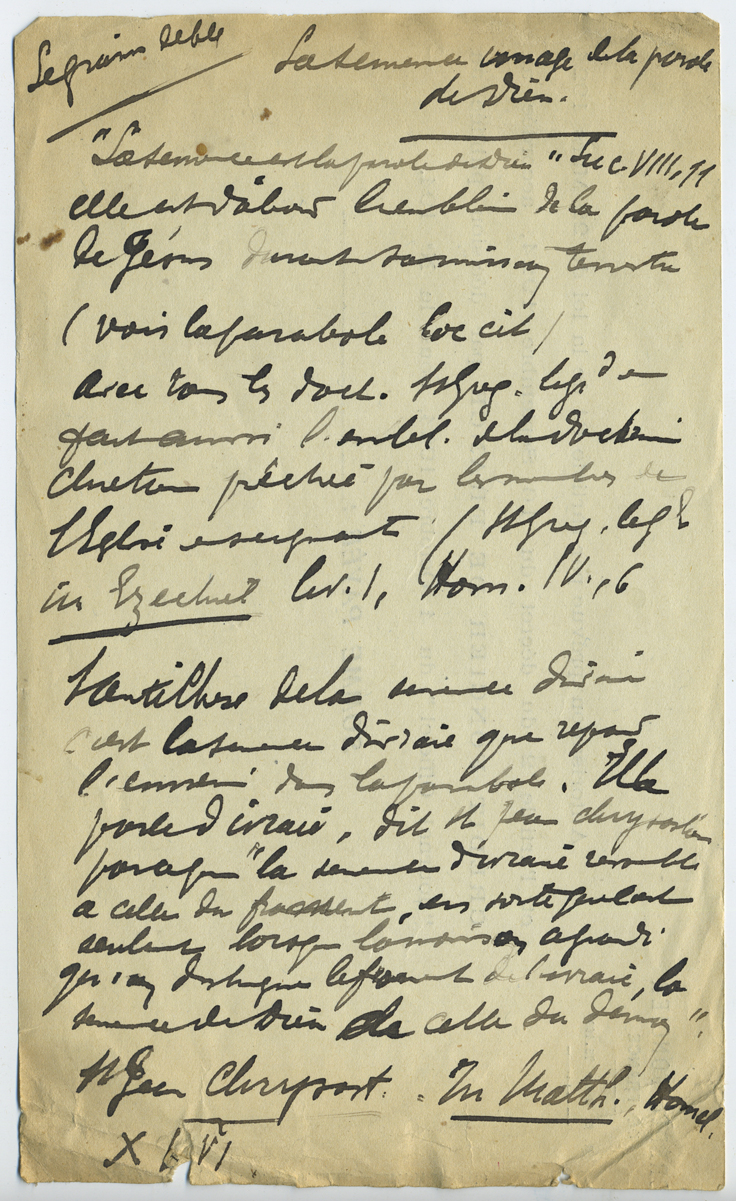 Le grain de blé
La semence image de la parole
de Dieu.
"La semence est la parole de Dieu" Luc. VIII, 11
elle est d'abord l'emblème de la parole
de Jésus durant sa mission terrestre
(voir la parabole loc cit)
Avec tous les doct. St Greg. le gd en
fait aussi l'embl. de la doctrine
chrétienne prêchée par les membres de
l'Eglise enseignante (St Greg. le gd
in Ezechiel liv. 1, Hom. IV., 6
L'antithèse de la semence divine
c'est la semence d'ivraie que répand
l'ennemi dans la parabole. Il a
parlé d'ivraie, dit St Jean Chrysostôme
parce que "la semence d'ivraie ressemble
a celle du froment, en sorte que c'est
seulement lorsque la moisson a grandi
qu'on distingue le froment de l'ivraie, la
semence de Dieu de celle du démon".
St Jean Chrysost. - In Matth., Homel.
XLVI